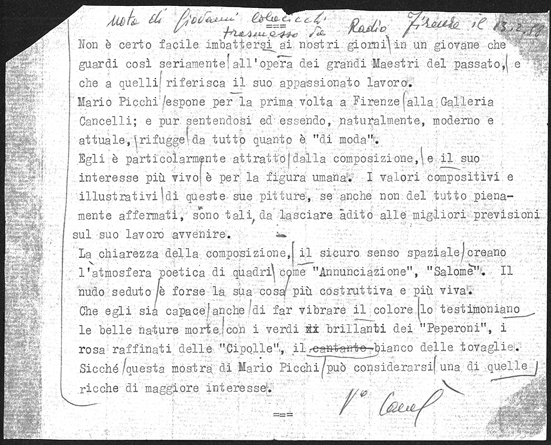 nota di Giovanni Colacicchi
trasmesso da Radio Firenze il 13.2.
Non è certo facile imbattersi ai nostri giorni/in un giovane che
guardi così seriamente/all'opera dei grandi Maestri del passato,/e
che a quelli/riferisca il suo appassionato lavoro.
Mario Picchi/espone per la prima volta a Firenze/alla Galleria
Cancelli; e pur sentendosi ed essendo, naturalmente, moderno e
attuale,/rifugge/da tutto quanto è "di moda".
Egli è particolarmente attratto/dalla composizione,/e il suo
interesse più vivo/è per la figura umana. I valori compositivi e
illustrativi/di queste sue pitture, se anche non del tutto piena-
mente affermati, sono tali, da lasciare adito alle migliori previsioni
sul suo lavoro avvenire.
La chiarezza della composizione,/il sicuro senso spaziale/creano
l'atmosfera poetica di quadri/come "Annunciazione", "Salomè". Il
nudo seduto/è forse la sua cosa/più costruttiva e più viva.
Che egli sia capace/anche/di far vibrare il colore/lo testimoniano
le belle nature morte/con i verdi xx brillanti dei "Peperoni", i
rosa raffinati delle "Cipolle", il cantante bianco delle tovaglie.
Sicché/questa mostra di Mario Picchi/può considerarsi/una di quelle/
ricche di maggiore interesse.